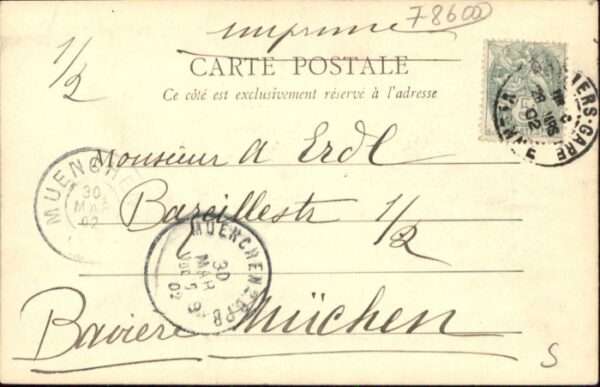 78600
imprimé
1/2
CARTE POSTALE
Ce côté est exclusivement réservé à l'adresse
ERS-GARE
VIENNE
28
MARS
02
Monsieur A Erdl
MUENCHEN
30
MAR
02
Bareillestr 1/2
MUENCHEN
30
MAR
02
Bavière München
S